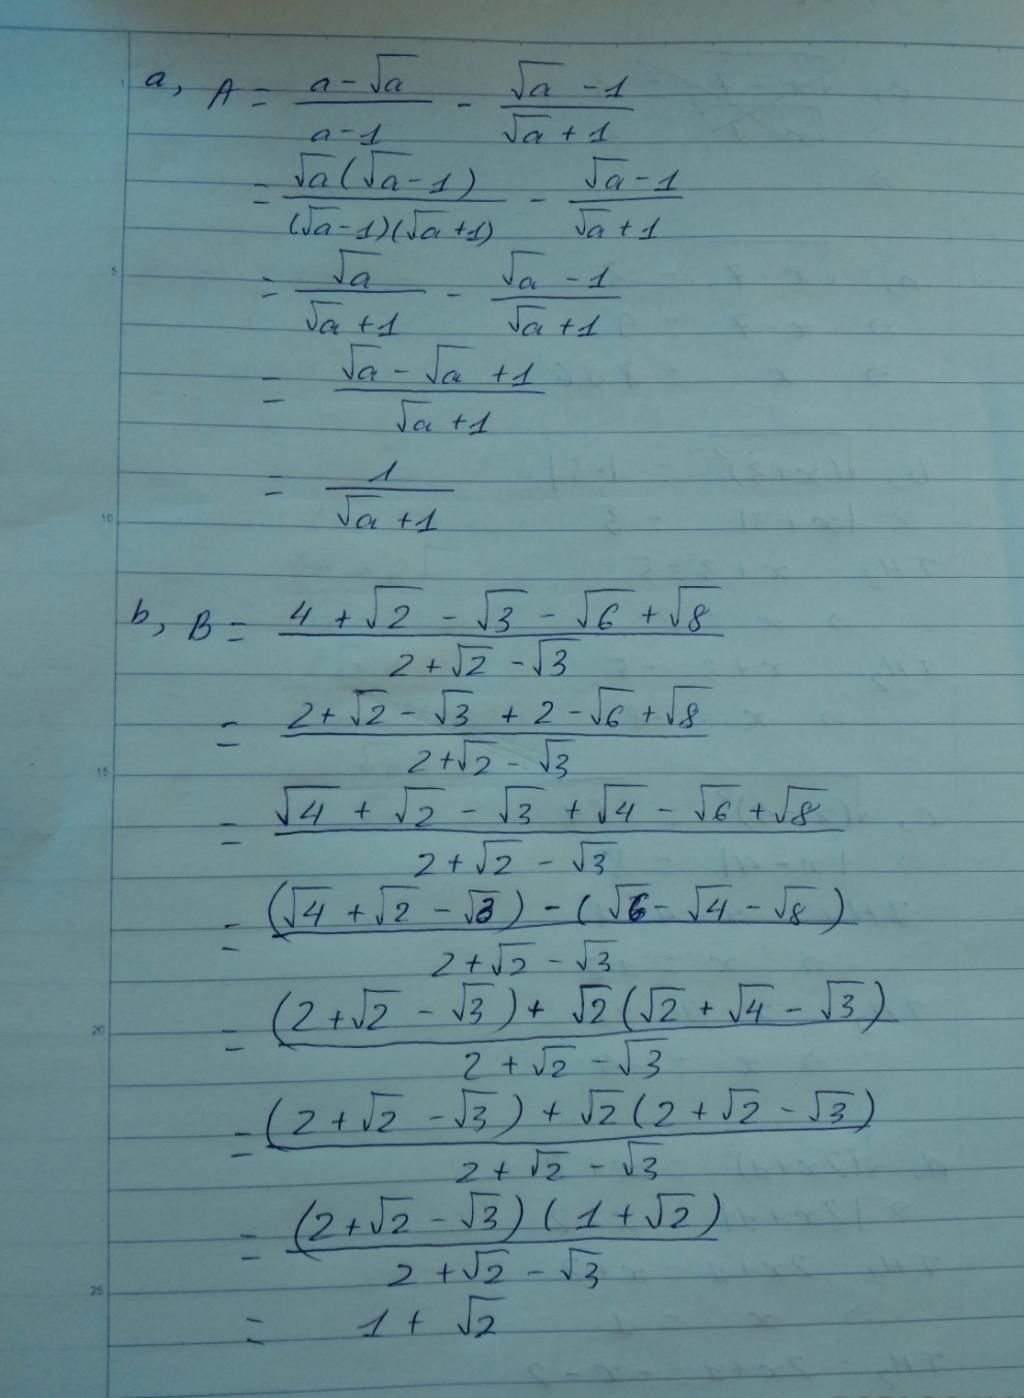 a, A = (a - √a)/(a - 1) - (√a - 1)/(√a + 1)
= (√a(√a - 1))/((√a - 1)(√a + 1)) - (√a - 1)/(√a + 1)
5
= √a/(√a + 1) - (√a - 1)/(√a + 1)
= (√a - √a + 1)/(√a + 1)
= 1/(√a + 1)
10
b, B = (4 + √2 - √3 - √6 + √8)/(2 + √2 - √3)
= (2 + √2 - √3 + 2 - √6 + √8)/(2 + √2 - √3)
15
= (√4 + √2 - √3 + √4 - √6 + √8)/(2 + √2 - √3)
= ((√4 + √2 - √3) - (√6 - √4 - √8))/(2 + √2 - √3)
20
= ((2 + √2 - √3) + √2(√2 + √4 - √3))/(2 + √2 - √3)
= ((2 + √2 - √3) + √2(2 + √2 - √3))/(2 + √2 - √3)
= ((2 + √2 - √3)(1 + √2))/(2 + √2 - √3)
25
= 1 + √2